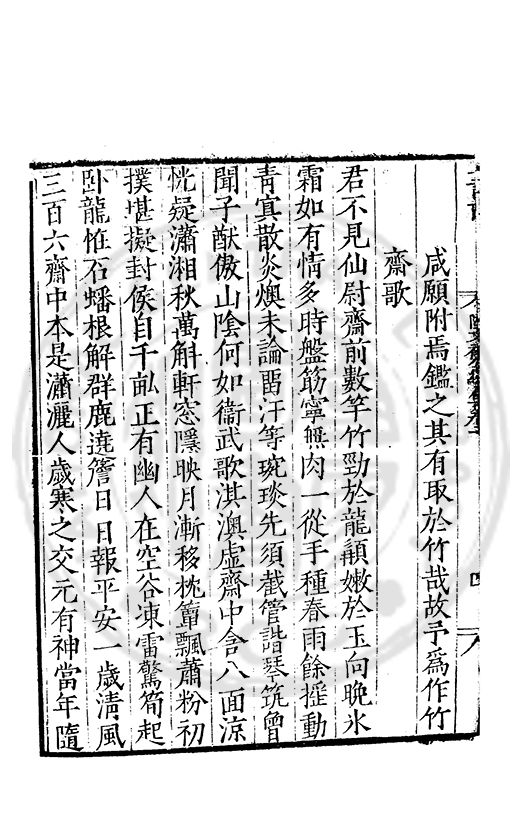 咸願附焉鑑之其有取於竹哉故予爲作竹
齋歌
君不見仙尉齋前數竿竹勁於龍顙嫩於玉向晚氷
霜如有情多時盤筯寧無肉一從手種春雨餘摧動
青寘散炎燠未論畱汗等琬琰先須截管諧琴筑曾
聞子猷傲山陰何如衞武歌淇澳虚齋中含八面涼
恍疑瀟湘秋萬斛軒窓隱映月漸移枕簟飄蕭粉初
撲堪擬封侯自千畝正有幽人在空谷凍雷驚筍起
卧龍惟石蟠根解群鹿遶簷日日報平安一歲淸風
三百六齋中本是瀟灑人歲寒之交元有神當年隨
四